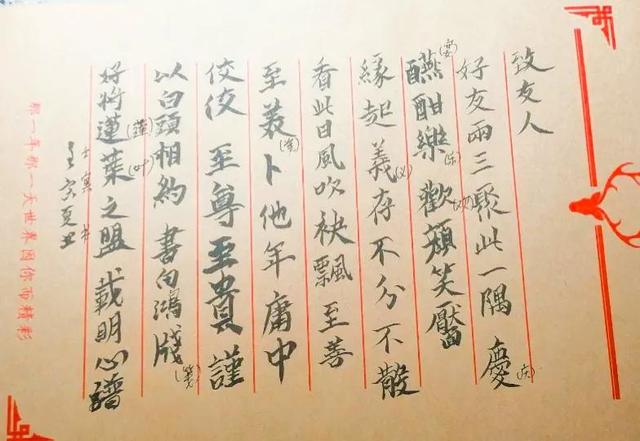 致友人
好友兩三聚此一隅 慶(庆)
醼(宴)酣樂(乐)歡(欢)蘋笑靨
緣起義(义)存不分不散
看此日風吹袂飄 至善
至義卜他年庸中
佼佼 至尊至貴 謹
以白頭相約 書向鴻牋(笺)
好將蓮(莲)葉(叶)之盟 載明心譜
壬寅
那一年那一天世界因你而精彩